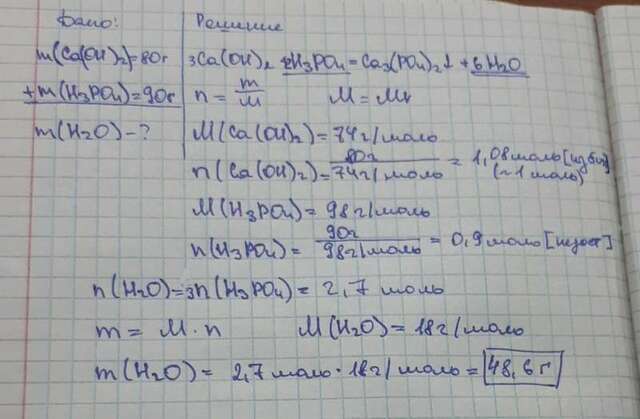 Дано:
Решение
m(Ca(OH)2)=80г
3Ca(OH)2 + 2H3PO4 = Ca3(PO4)2↓ + 6H2O
+m(H3PO4)=90г
n = m/M M = Mr
m(H2O) - ?
M(Ca(OH)2) = 74г/моль
n(Ca(OH)2) = 80г/74г/моль = 1,08моль [избыт]
(~1 моль)
M(H3PO4) = 98г/моль
n(H3PO4) = 90г/98г/моль = 0,9моль [недост]
n(H2O) = 3n(H3PO4) = 2,7 моль
m = M · n M(H2O) = 18г/моль
m(H2O) = 2,7моль · 18г/моль = 48,6г